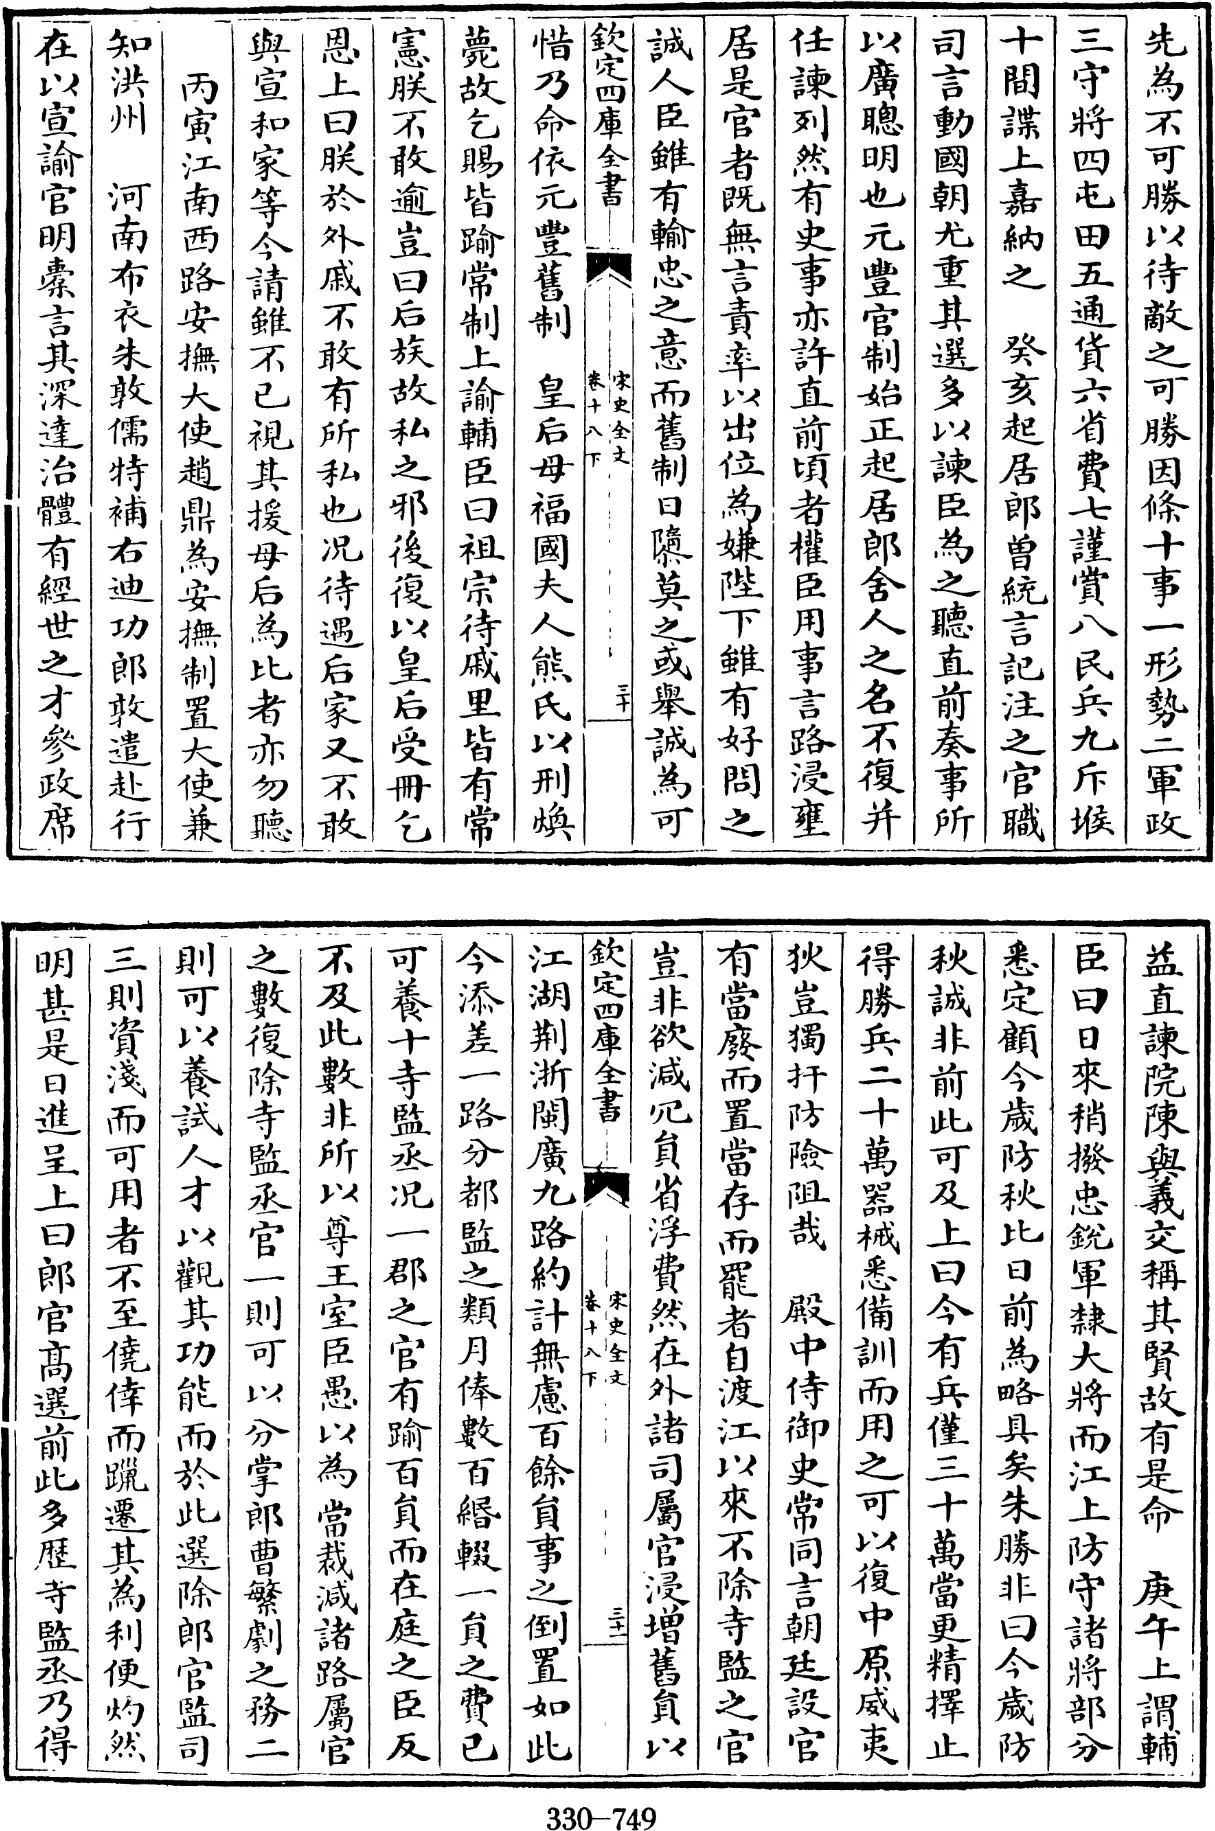 先為不可勝以待敵之可勝因條十事一形勢二軍政
三守將四屯田五通貨六省費七謹賞八民兵九斥堠
十間諜上嘉納之　癸亥起居郎曽統言記注之官職
司言動國朝尤重其選多以諫臣為之聽直前奏事所
以廣聰明也元豐官制始正起居郎舍人之名不復并
任諫列然有史事亦許直前頃者權臣用事言路浸壅
居是官者既無言責率以出位為嫌陛下雖有好問之
誠人臣雖有輸忠之意而舊制日隳莫之或舉誠為可
欽定四庫全書　宋史全文　卷十八下　三十
惜乃命依元豐舊制　皇后母福國夫人熊氏以刑煥
薨故乞賜皆踰常制上諭輔臣曰祖宗待戚里皆有常
憲朕不敢逾豈曰后族故私之邪後復以皇后受冊乞
恩上曰朕於外戚不敢有所私也况待遇后家又不敢
與宣和家等今請雖不已視其援母后為比者亦勿聽
丙寅江南西路安撫大使趙鼎為安撫制置大使兼
知洪州　河南布衣朱敦儒特補右迪功郎敦遣赴行
在以宣諭官明槖言其深達治體有經世之才參政席
益直諫院陳與義交稱其賢故有是命　庚午上謂輔
臣曰日來稍撥忠銳軍隸大將而江上防守諸將部分
悉定顧今歲防秋比日前為略具矣朱勝非曰今歲防
秋誠非前此可及上曰今有兵僅三十萬當更精擇止
得勝兵二十萬器械悉備訓而用之可以復中原威夷
狄豈獨扞防險阻哉　殿中侍御史常同言朝廷設官
有當廢而置當存而罷者自渡江以來不除寺監之官
豈非欲減冗員省浮費然在外諸司屬官浸增舊員以
欽定四庫全書　宋史全文　卷十八下　三十一
江湖荆浙閩廣九路約計無慮百餘員事之倒置如此
今添差一路分都監之類月俸數百緡輟一員之費已
可養十寺監丞况一郡之官有踰百員而在庭之臣反
不及此數非所以尊王室臣愚以為當裁減諸路屬官
之數復除寺監丞官一則可以分掌郎曹繁劇之務二
則可以養試人才以觀其功能而於此選除郎官監司
三則資淺而可用者不至僥倖而躐遷其為利便灼然
明甚是日進呈上曰郎官髙選前此多歴寺監丞乃得
330-749